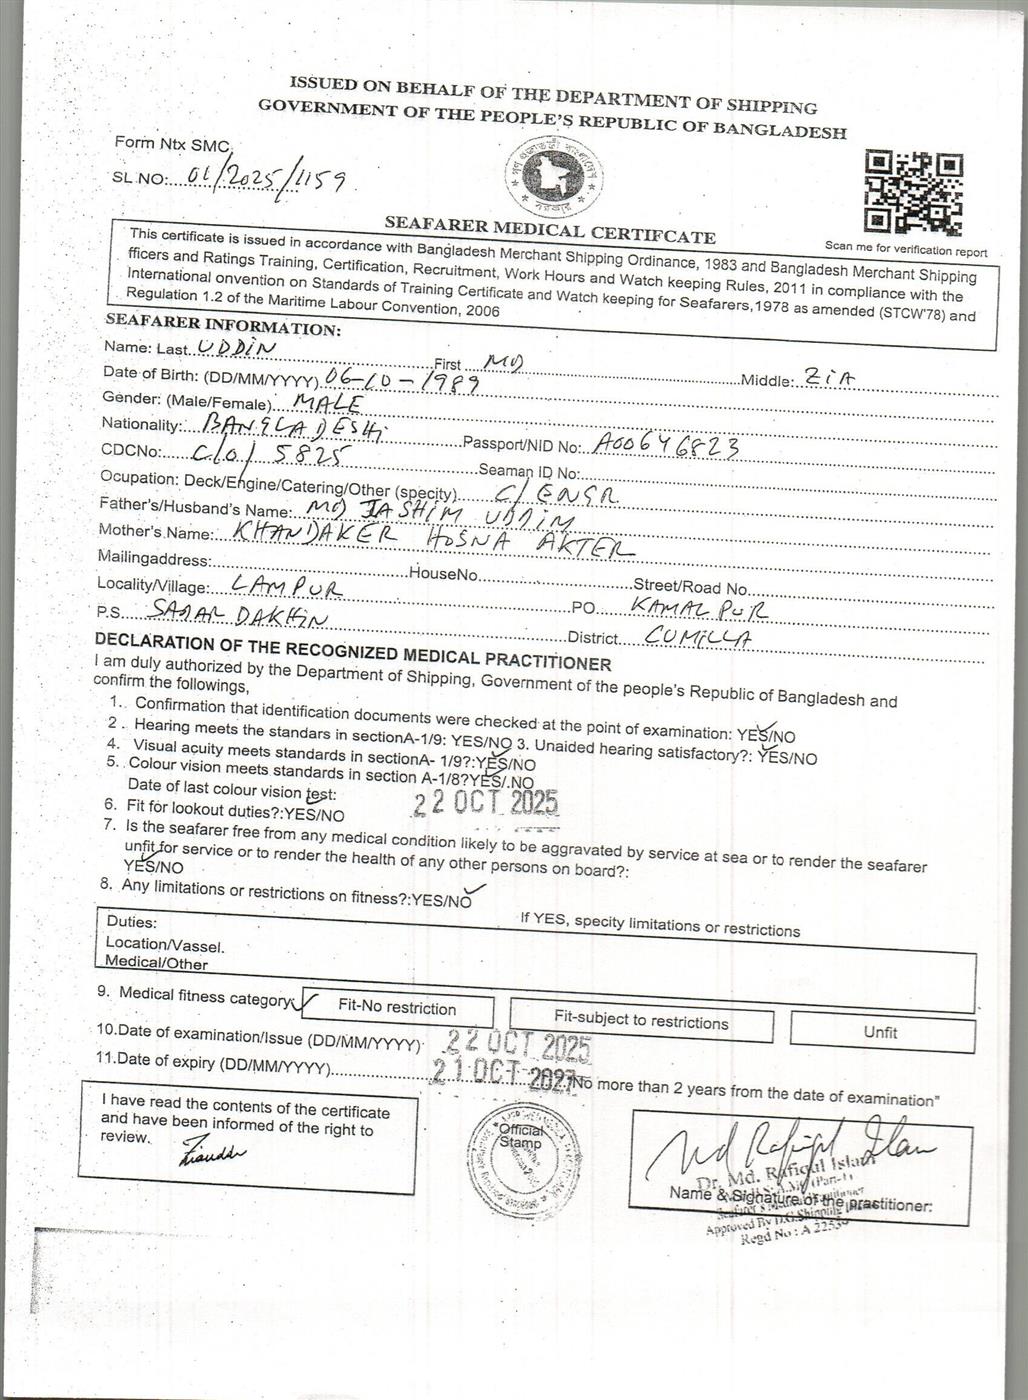 ISSUED ON BEHALF OF THE DEPARTMENT OF SHIPPING
GOVERNMENT OF THE PEOPLE'S REPUBLIC OF BANGLADESH
Form Ntx SMC.
SL NO: 01/2025/1159
গণপ্রজাতন্ত্রী বাংলাদেশ
সরকার
Scan me for verification report
SEAFARER MEDICAL CERTIFCATE
This certificate is issued in accordance with Bangladesh Merchant Shipping Ordinance, 1983 and Bangladesh Merchant Shipping
fficers and Ratings Training, Certification, Recruitment, Work Hours and Watch keeping Rules, 2011 in compliance with the
International onvention on Standards of Training Certificate and Watch keeping for Seafarers,1978 as amended (STCW'78) and
Regulation 1.2 of the Maritime Labour Convention, 2006
SEAFARER INFORMATION:
Name: Last UDDIN First MD Middle: ZIA
Date of Birth: (DD/MM/YYYY) 06-10-1989
Gender: (Male/Female) MALE
Nationality: BANGLADESHi Passport/NID No: A00646823
CDCNo: C/O/5825 Seaman ID No:
Ocupation: Deck/Engine/Catering/Other (specity) C/ENGR
Father's/Husband's Name: MD JASHIM UDDIM
Mother's Name: KHANDAKER HOSNA AKTER
Mailingaddress: HouseNo Street/Road No
Locality/Village: LAMPUR PO KAMALPUR
P.S. SADAR DAKHIN District CUMILLA
DECLARATION OF THE RECOGNIZED MEDICAL PRACTITIONER
I am duly authorized by the Department of Shipping, Government of the people's Republic of Bangladesh and
confirm the followings,
1. Confirmation that identification documents were checked at the point of examination: YES/NO
2 . Hearing meets the standars in sectionA-1/9: YES/NO 3. Unaided hearing satisfactory?: YES/NO
4. Visual acuity meets standards in sectionA- 1/9?:YES/NO
5. Colour vision meets standards in section A-1/8?YES/.NO
Date of last colour vision test: 22 OCT 2025
6. Fit for lookout duties?:YES/NO
7. Is the seafarer free from any medical condition likely to be aggravated by service at sea or to render the seafarer
unfit for service or to render the health of any other persons on board?:
YES/NO
8. Any limitations or restrictions on fitness?:YES/NO
If YES, specity limitations or restrictions
Duties:
Location/Vassel.
Medical/Other
9. Medical fitness category Fit-No restriction Fit-subject to restrictions Unfit
10.Date of examination/Issue (DD/MM/YYYY) 22 OCT 2025
11.Date of expiry (DD/MM/YYYY) 21 OCT 2027 No more than 2 years from the date of examination"
I have read the contents of the certificate
and have been informed of the right to
review. Ziauddin
Official
Stamp
Md Rafiqul Islam
Dr. Md. Rafiqul Islam
Name & Signature of the practitioner:
Approved By D.G.Shipping
Regd No : A 22530